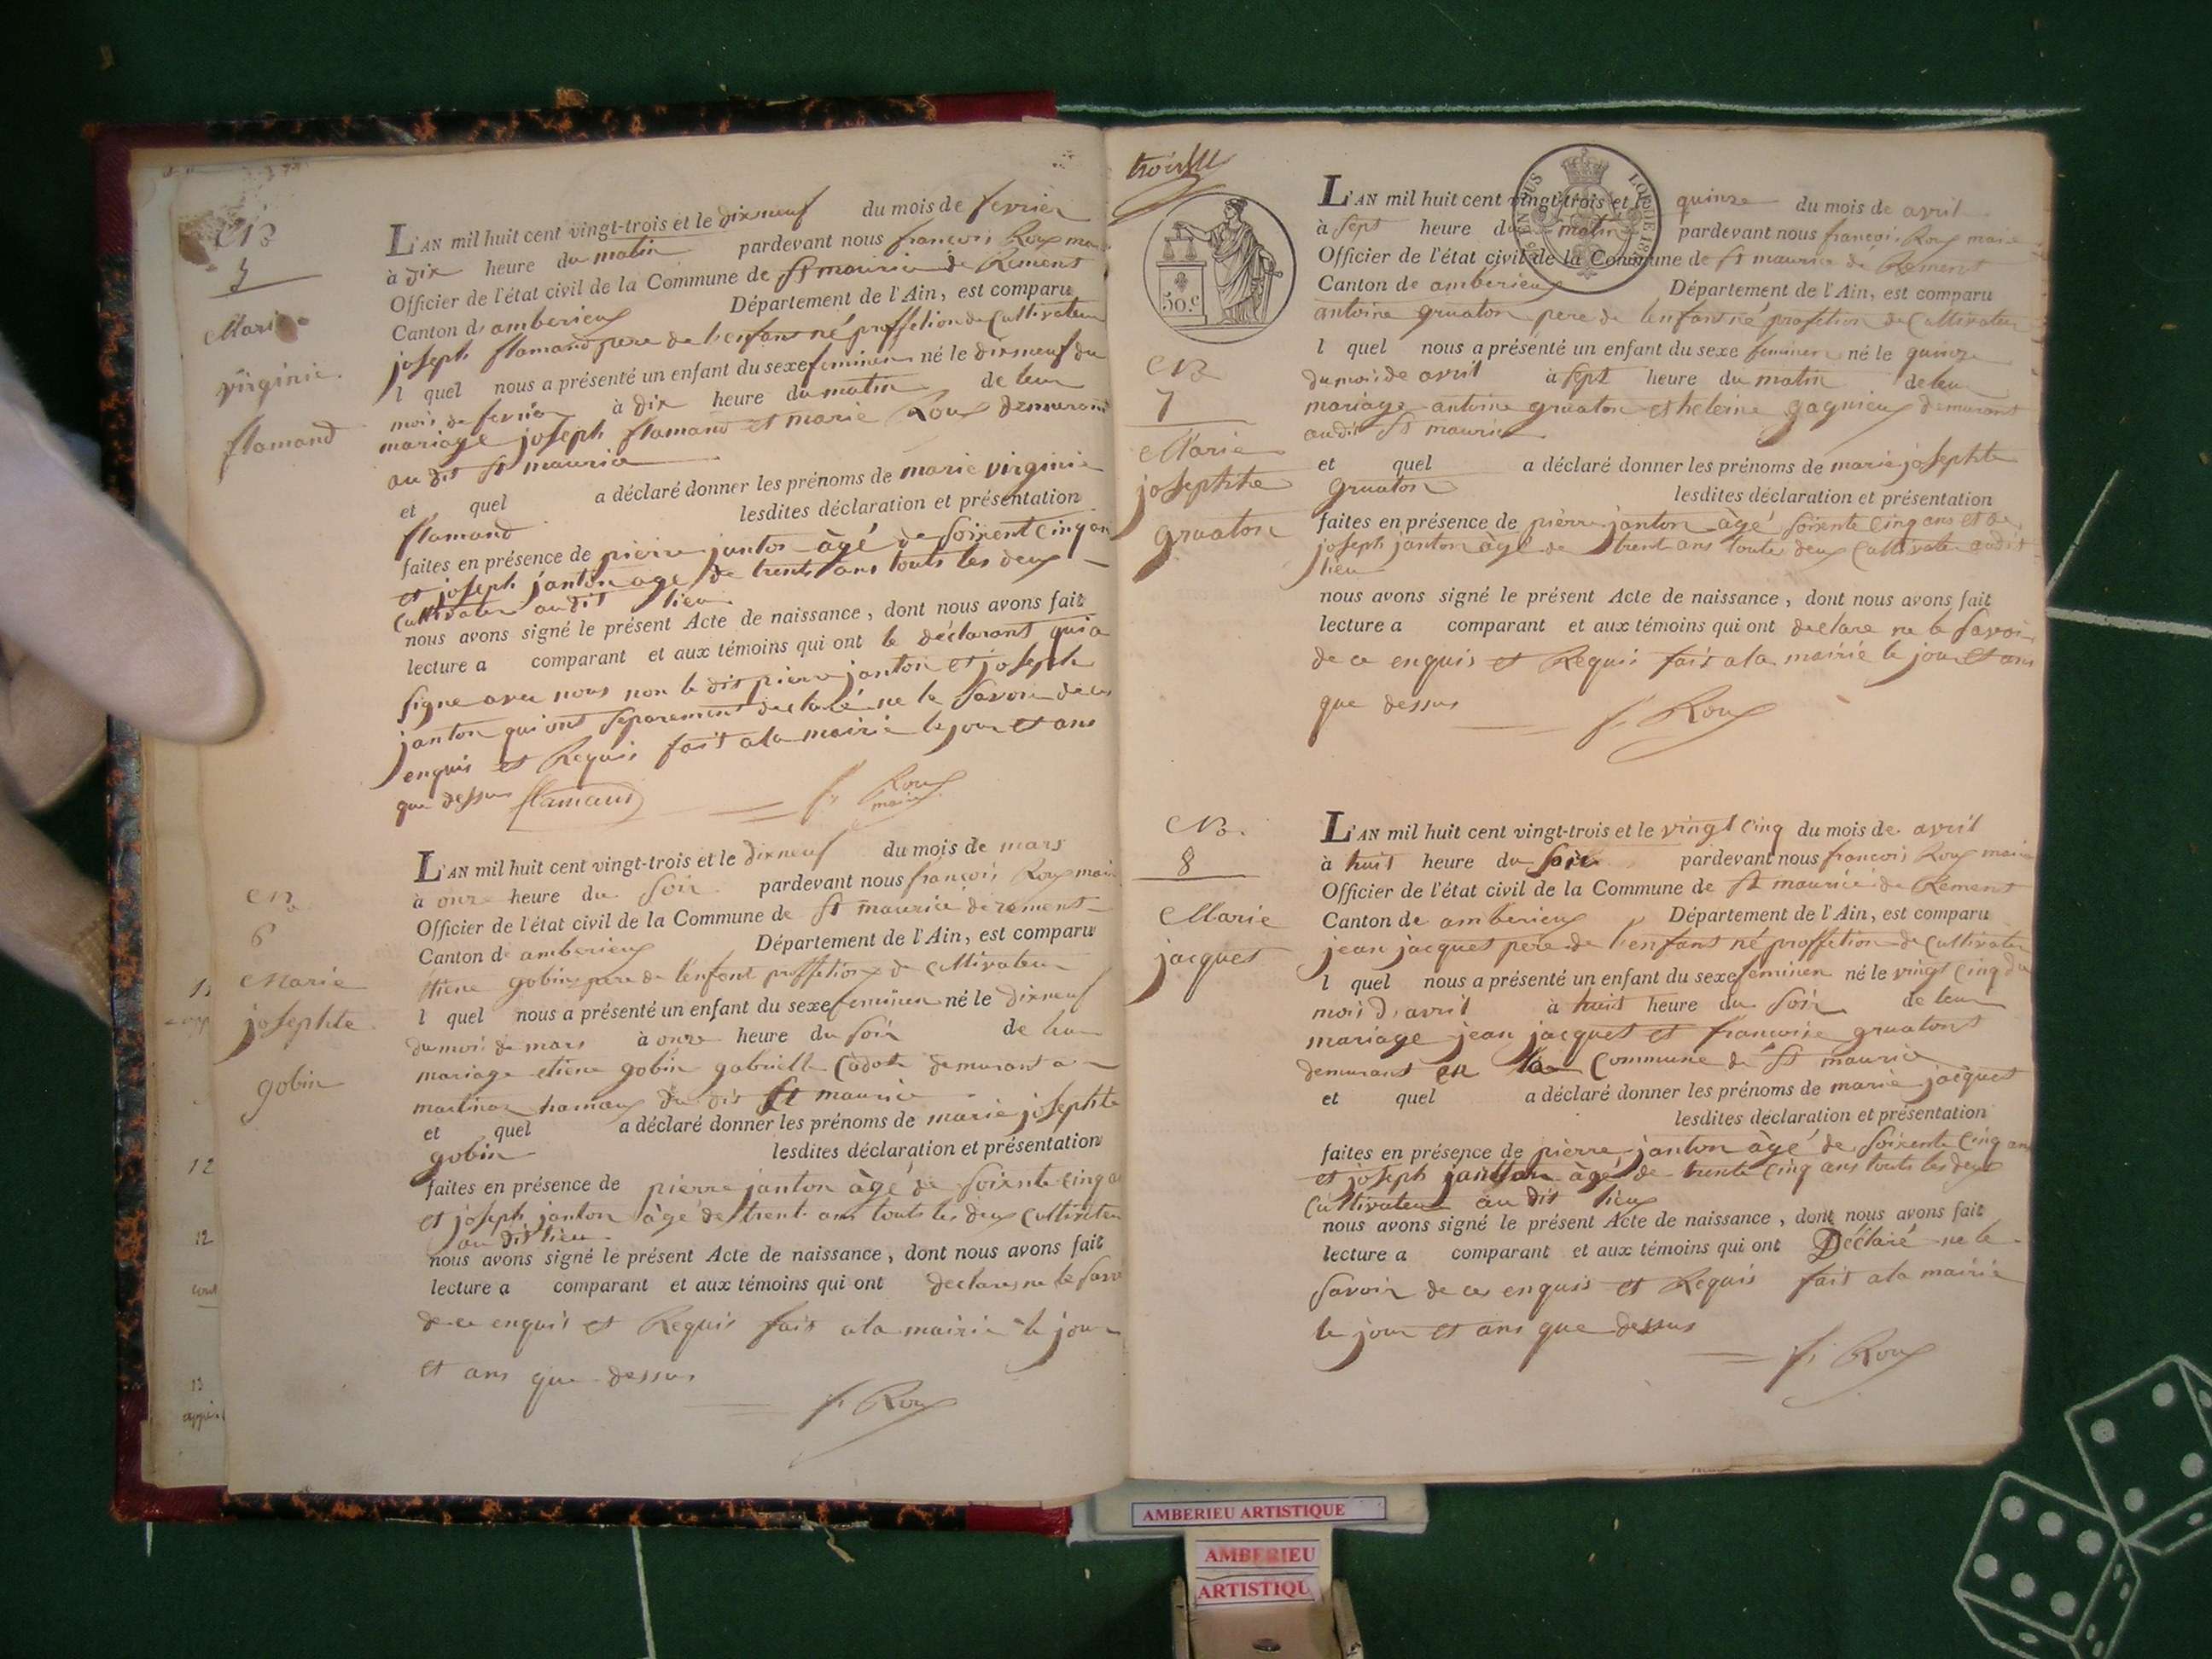 No
5
Marie
virginie
flamand
L'AN mil huit cent vingt-trois et le dixneuf du mois de fevrier
à dix heure du matin pardevant nous françois Roux maire
Officier de l'état civil de la Commune de St maurice de Rement
Canton d amberieux Département de l'Ain, est comparu
joseph flamand pere de l'enfant né proffetion de Cultivateur
l quel nous a présenté un enfant du sexe feminen né le dixneuf du
mois de fevrier à dix heure du matin de leur
mariage joseph flamand et marie Roux demurant
au dit St maurice
et quel a déclaré donner les prénoms de marie virginie
flamand lesdites déclaration et présentation
faites en présence de pierre janton âgé de Soixent Cinq an
et joseph janton age de trent ans touts les deux
Cultivateur audit lieu
nous avons signé le présent Acte de naissance, dont nous avons fait
lecture a comparant et aux témoins qui ont le déclarant qui a
signe avec nous non le dit pierre janton et joseph
janton qui ont separement declaré ne le Savoir de ce
enquis et Requis fait a la mairie le jour et ans
que dessus flamand f. Roux
maire
No
6
Marie
josephte
gobin
L'AN mil huit cent vingt-trois et le dixneuf du mois de mars
à onze heure du Soir pardevant nous françois Roux maire
Officier de l'état civil de la Commune de St maurice de rement
Canton de amberieux Département de l'Ain, est comparu
etiene gobin pere de l'enfent proffetion de Cultivateur
l quel nous a présenté un enfant du sexe feminen né le dixneuf
du mois de mars à onze heure du Soir de leur
mariage etiene gobin gabrielle Cadot demurant a
martinaz hamaux du dit St maurice
et quel a déclaré donner les prénoms de marie josephte
gobin lesdites déclaration et présentation
faites en présence de pierre janton âgé de Soixente Cinq a
et joseph janton âgé de trent ans touts les deux Cultivateu
au dit lieu
nous avons signé le présent Acte de naissance, dont nous avons fait
lecture a comparant et aux témoins qui ont declares ne le Savo
de ce enquis et Requis fait a la mairie le jour
et ans que dessus
f. Roux
troisille
50.c
L'AN mil huit cent vingt-trois et le quinze du mois de avril
à Sept heure du matin pardevant nous françois Roux maire
Officier de l'état civil de la Commune de St maurice de Rement
Canton de amberieux Département de l'Ain, est comparu
antoine gruaton pere de lenfant né profetion de Cultivateur
l quel nous a présenté un enfant du sexe feminen né le quinze
du mois de avril à Sept heure du matin de leur
mariage antoine gruaton et heleine gagnieux demurant
audit St maurice
et quel a déclaré donner les prénoms de marie josephte
gruaton lesdites déclaration et présentation
faites en présence de pierre janton âgé Soixente Cinq ans et de
joseph janton âgé de trent ans toutes deux Cultivateu audit
lieu
nous avons signé le présent Acte de naissance, dont nous avons fait
lecture a comparant et aux témoins qui ont declare ne le Savoir
de ce enquis et Requis fait a la mairie le jour et ans
que dessus f. Roux
No
7
Marie
josephte
gruaton
No.
8
Marie
jacquet
L'AN mil huit cent vingt-trois et le vingt Cinq du mois de avril
à huit heure du Soir pardevant nous francois Roux maire
Officier de l'état civil de la Commune de St mauricé de Rement
Canton de amberieux Département de l'Ain, est comparu
jean jacquet pere de l'enfant né proffetion de Cultivateu
l quel nous a présenté un enfant du sexe feminen né le vingt Cinq du
mois d'avril à huit heure du Soir de leur
mariage jean jacquet et francoise gruatont
demurant en la Commune de St maurice
et quel a déclaré donner les prénoms de marie jacquet
lesdites déclaration et présentation
faites en présence de pierre janton âgé de Soixente Cinq an
et joseph janton âgé de trente Cinq ans touts les deux
Cultivateur au dit lieu
nous avons signé le présent Acte de naissance, dont nous avons fait
lecture a comparant et aux témoins qui ont Déclaré ne le
Savoir de ce enquis et Requis fait a la mairie
le jour et ans que dessus
f. Roux
AMBERIEU ARTISTIQUE
AMBERIEU
ARTISTIQU